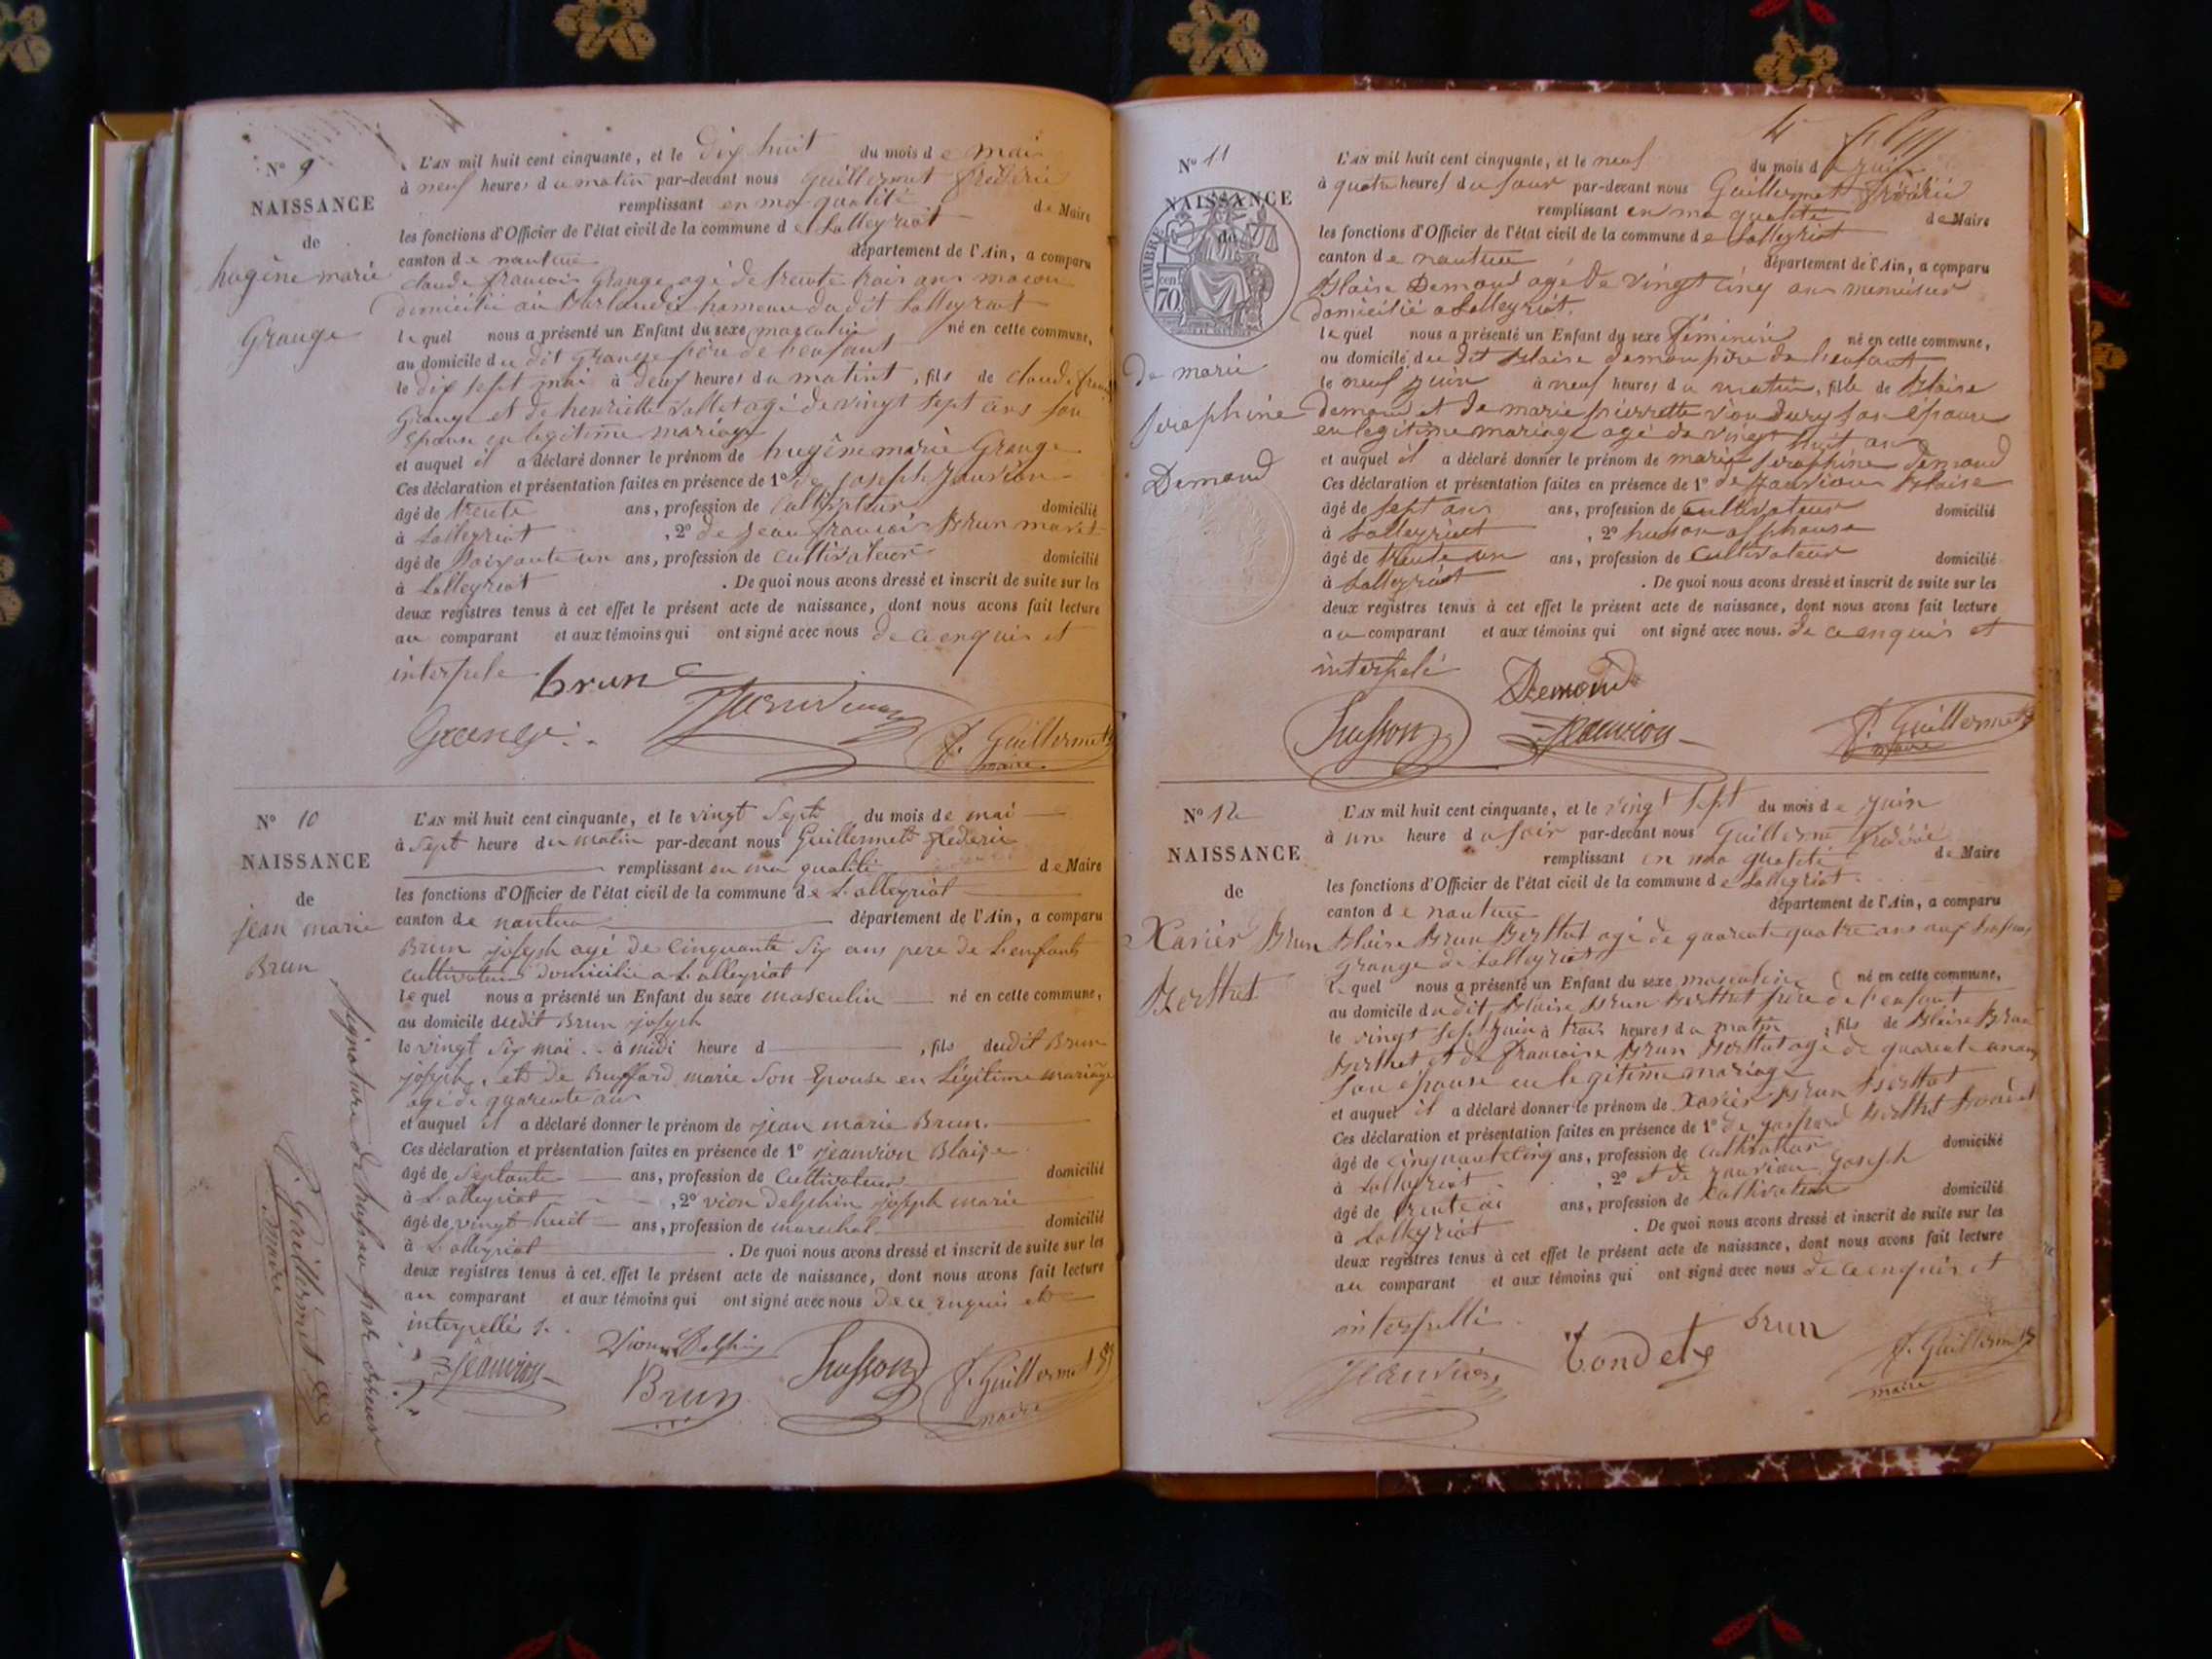 N° 9
NAISSANCE
de
hugêne marie
Grange
L'AN mil huit cent cinquante, et le dix huit du mois de mai
à neuf heures du matin par-devant nous Guillermet frédéric
remplissant en ma qualité de Maire
les fonctions d'Officier de l'état civil de la commune de Lalleyriat
canton de nantua département de l'Ain, a comparu
claude francois Grange agé de trente trois ans macon
domicilié hameau du dit Lalleyriat
lequel nous a présenté un Enfant du sexe masculin né en cette commune,
au domicile du dit Grange père de l'enfant
le dix sept mai à deux heures du matint, fils de claude
Grange et de henriette Vallet agé de vingt sept ans son
épouse en legitime mariage
et auquel il a déclaré donner le prénom de hugêne marie Grange
Ces déclaration et présentation faites en présence de 1° de joseph
âgé de trente ans, profession de cultivateur domicilié
à Lalleyriat, 2° de jean francois Brun
âgé de soixante un ans, profession de cultivateur domicilié
à Lalleyriat. De quoi nous avons dressé et inscrit de suite sur les
deux registres tenus à cet effet le présent acte de naissance, dont nous avons fait lecture
au comparant et aux témoins qui ont signé avec nous de ce enquis et
interpele
brun
Grange
F. Guillermet
maire
N° 10
NAISSANCE
de
jean marie
Brun
L'AN mil huit cent cinquante, et le vingt Sept du mois de mai
à Sept heure du matin par-devant nous Guillermet frederic
remplissant en ma qualité de Maire
les fonctions d'Officier de l'état civil de la commune de Lalleyriat
canton de nantua département de l'Ain, a comparu
Brun joseph agé de cinquante Six ans pere de l'enfant
cultivateur domicilié a Lalleyriat
lequel nous a présenté un Enfant du sexe masculin né en cette commune,
au domicile dudit Brun joseph
le vingt Six mai à midi heure d, fils dudit Brun
joseph, et de Buffard marie Son Epouse en Légitime mariage
agé de quarente ans
et auquel il a déclaré donner le prénom de jean marie Brun.
Ces déclaration et présentation faites en présence de 1° jeanvion Blaise
âgé de Septante ans, profession de Cultivateur domicilié
à Lalleyriat, 2° vion Delphin joseph marie
âgé de vingt huit ans, profession de marechal domicilié
à Lalleyriat. De quoi nous avons dressé et inscrit de suite sur les
deux registres tenus à cet effet le présent acte de naissance, dont nous avons fait lecture
au comparant et aux témoins qui ont signé avec nous de ce enquis et
interpellés
Signature de husson
F. Guillermet
maire
Jeanvion
Vion Delphin
Brun
Husson
F. Guillermet
maire
N° 11
NAISSANCE
de
TIMBRE
70 cent
de marie
seraphine
Demond
L'AN mil huit cent cinquante, et le neuf du mois de juin
à quatre heures du soir par-devant nous Guillermet frédéric
remplissant en ma qualité de Maire
les fonctions d'Officier de l'état civil de la commune de Lalleyriat
canton de nantua département de l'Ain, a comparu
Blaise Demond agé de vingt cinq ans menuisier
domicilié a Lalleyriat.
lequel nous a présenté un Enfant du sexe féminin né en cette commune,
au domicile du dit Blaise demon père de l'enfant
le neuf juin à neuf heures du matin, fille de Blaise
demond et de marie pierrette son épouse
en legitime mariage agé de vingt huit ans
et auquel il a déclaré donner le prénom de marie seraphine demond
Ces déclaration et présentation faites en présence de 1° de jeanvion Blaise
âgé de sept ans, profession de cultivateur domicilié
à Lalleyriat, 2° husson alphonse
âgé de trente un ans, profession de cultivateur domicilié
à Lalleyriat. De quoi nous avons dressé et inscrit de suite sur les
deux registres tenus à cet effet le présent acte de naissance, dont nous avons fait lecture
au comparant et aux témoins qui ont signé avec nous. de ce enquis et
interpelé
Demond
Husson
Jeanvion
F. Guillermet
maire
N° 12
NAISSANCE
de
Xavier Brun
Berthet
L'AN mil huit cent cinquante, et le vingt sept du mois de juin
à une heure du soir par-devant nous Guillerme frédéric
remplissant en ma qualité de Maire
les fonctions d'Officier de l'état civil de la commune de Lalleyriat
canton de nantua département de l'Ain, a comparu
Blaise Brun Berthet agé de quarente quatre ans
grange de Lalleyriat
lequel nous a présenté un Enfant du sexe masculin né en cette commune,
au domicile dudit Blaise Brun Berthet père de l'enfant
le vingt sept juin à trois heures du matin, fils de Blaise Brun
Berthet et de francoise Brun Berthet agé de quarente
son épouse en legitime mariage
et auquel il a déclaré donner le prénom de Xavier Brun Berthet
Ces déclaration et présentation faites en présence de 1° de gaspard Berthet
âgé de cinquante cinq ans, profession de cultivateur domicilié
à Lalleyriat, 2° et de joseph
âgé de trente ans, profession de cultivateur domicilié
à Lalleyriat. De quoi nous avons dressé et inscrit de suite sur les
deux registres tenus à cet effet le présent acte de naissance, dont nous avons fait lecture
au comparant et aux témoins qui ont signé avec nous de ce enquis et
interpellé
Jeanvion
tondet
brun
F. Guillermet
maire